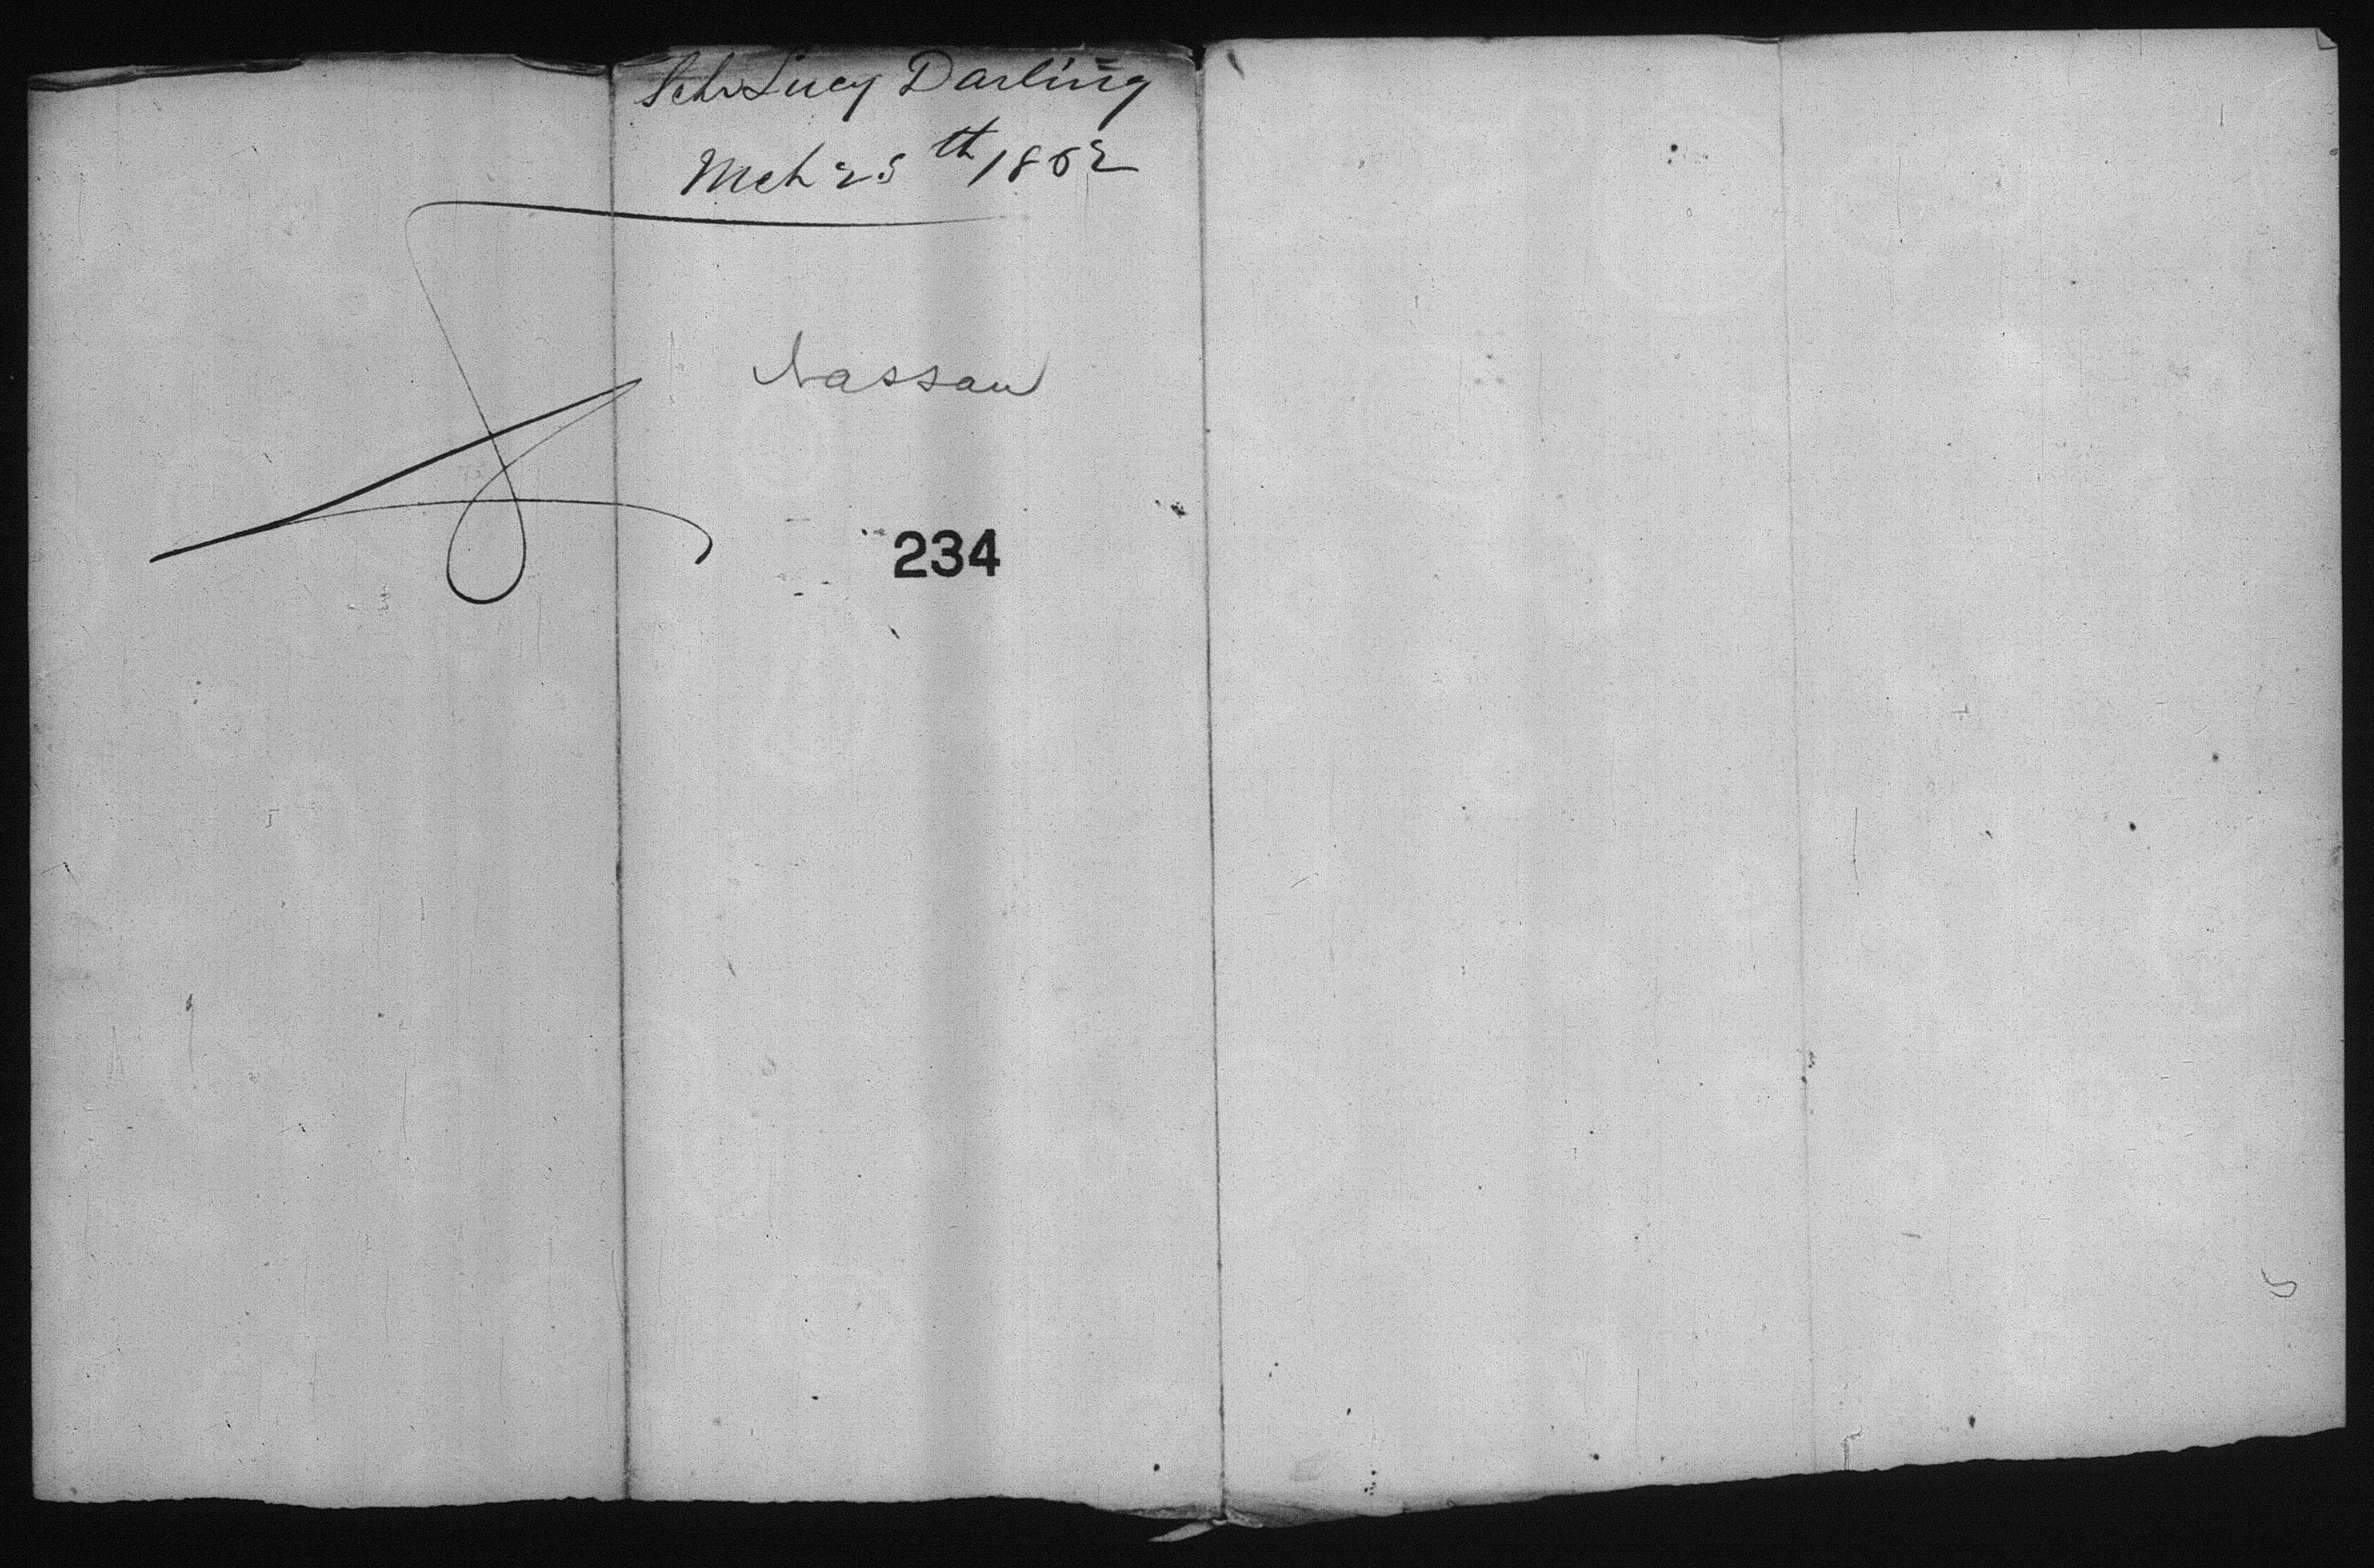 Schr Lucy Darling
Mch 25th 1862
Nassau
234